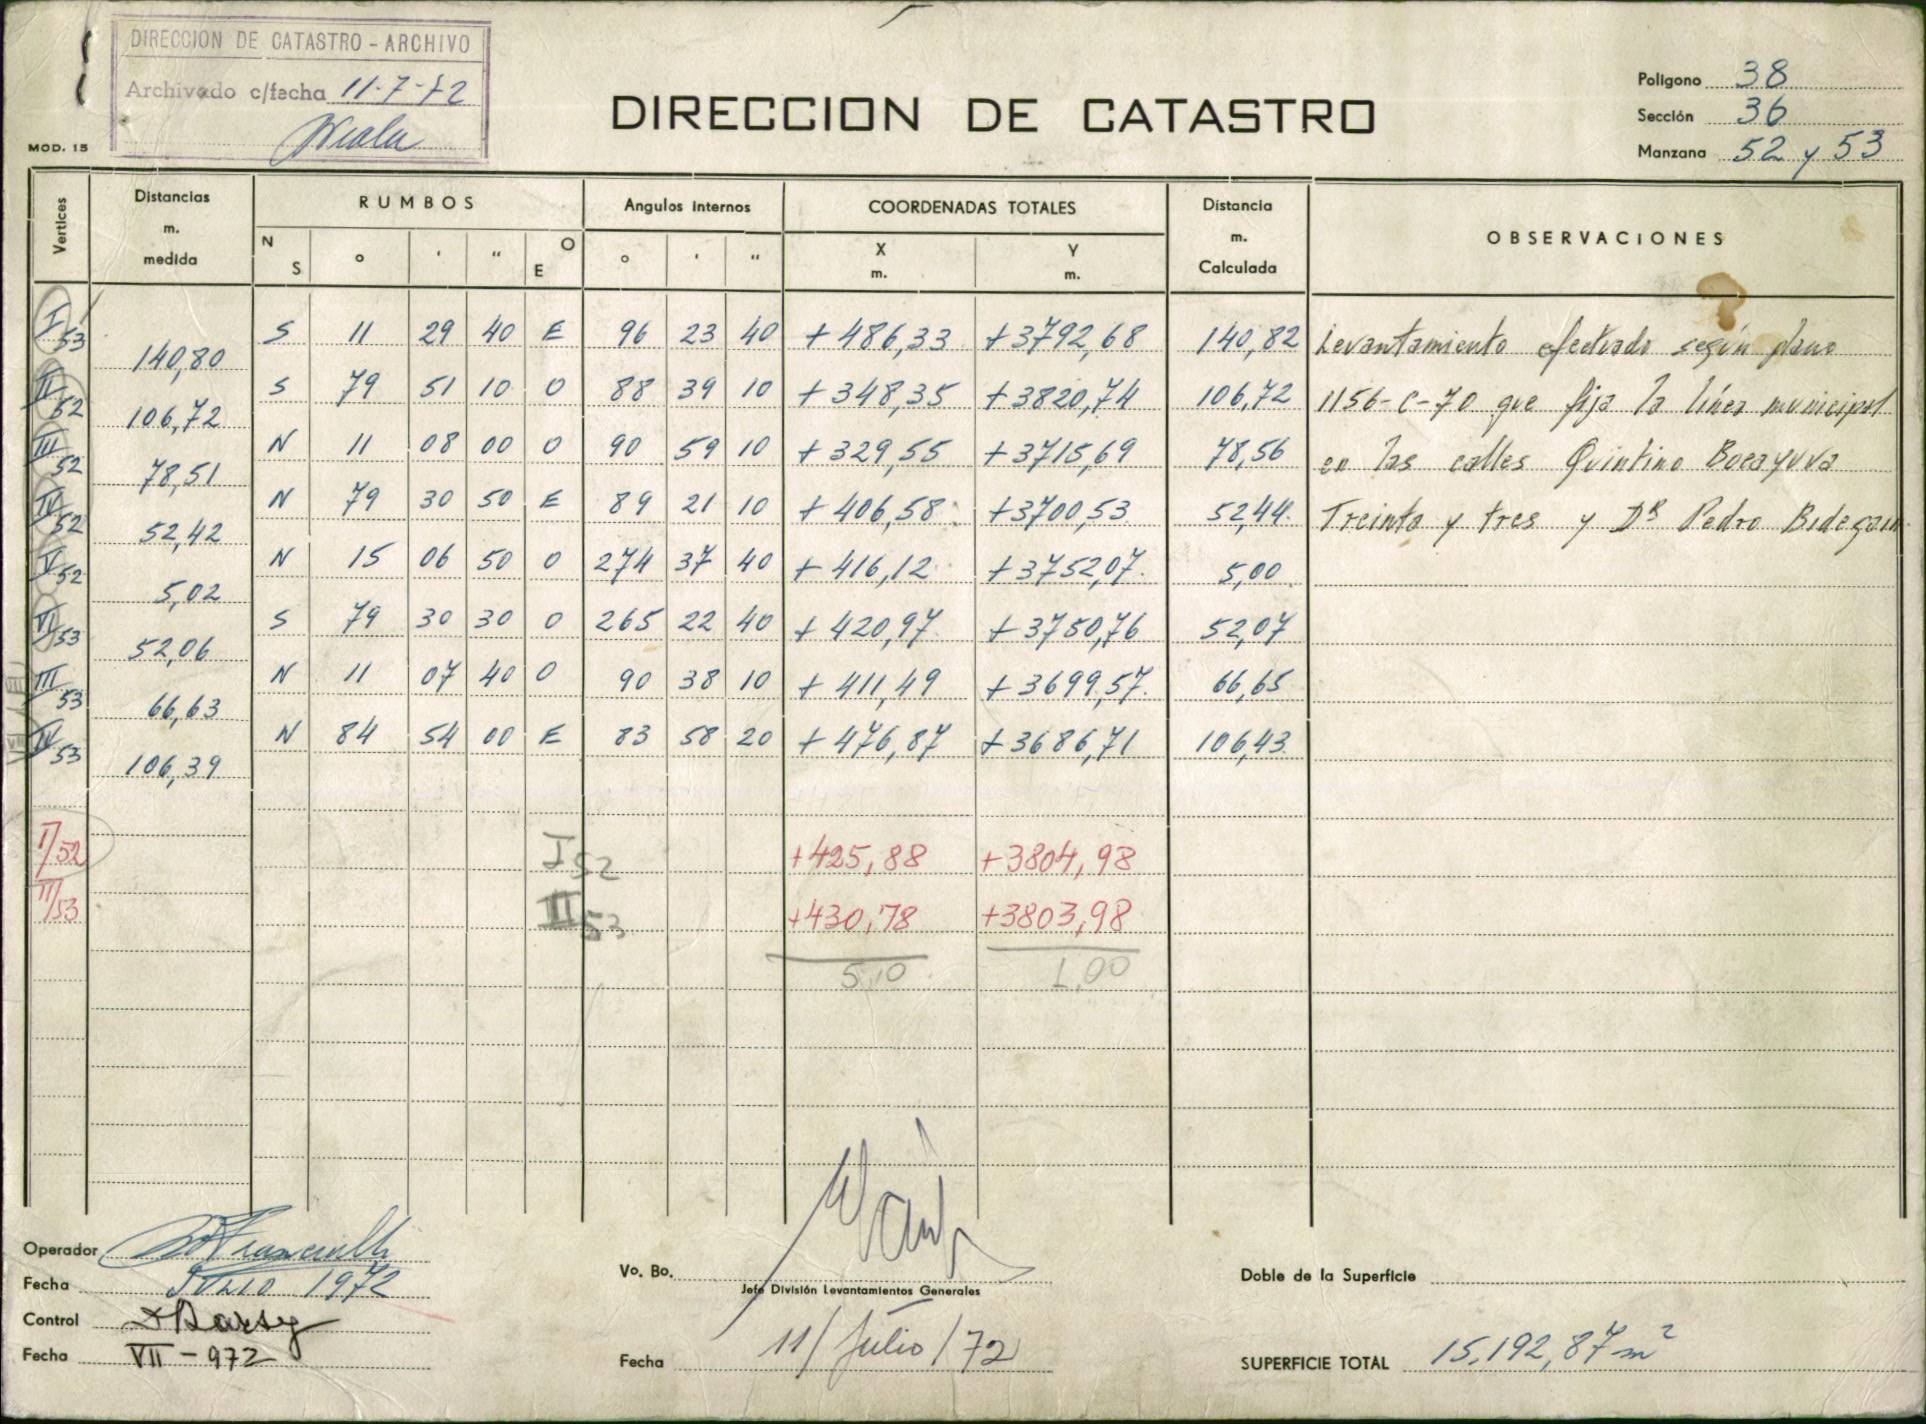 DIRECCION DE CATASTRO - ARCHIVO
Archivado c/fecha 11-7-72
MOD. 15
DIRECCION DE CATASTRO
Polígono 38
Sección 36
Manzana 52 y 53
Vertices
Distancias m. medida
RUMBOS
N S ° ' " O E
Angulos Internos
° ' "
COORDENADAS TOTALES
X m. Y m.
Distancia m. Calculada
OBSERVACIONES
I 53 140,80 S 11 29 40 E 96 23 40 + 486,33 + 3792,68 140,82 Levantamiento efectuado según plano
II 52 106,72 S 79 51 10 O 88 39 10 + 348,35 + 3820,74 106,72 1156-C-70 que fija la línea municipal
III 52 78,51 N 11 08 00 O 90 59 10 + 329,55 + 3715,69 78,56 en las calles Quintino Bocayuva
IV 52 52,42 N 79 30 50 E 89 21 10 + 406,58 + 3700,53 52,44 Treinta y tres y Dr Pedro Bidegain
V 52 5,02 N 15 06 50 O 274 37 40 + 416,12 + 3752,07 5,00
VI 53 52,06 S 79 30 30 O 265 22 40 + 420,97 + 3750,76 52,07
III 53 66,63 N 11 07 40 O 90 38 10 + 411,49 + 3699,57 66,65
IV 53 106,39 N 84 54 00 E 83 58 20 + 476,87 + 3686,71 106,43
I/52 I 52 +425,88 +3804,98
II/53 III 53 +430,78 +3803,98
5,10 1,00
Operador
Fecha JULIO 1972
Control
Fecha VII - 972
Vo. Bo.
Jefe División Levantamientos Generales
Fecha 11/Julio/72
Doble de la Superficie
SUPERFICIE TOTAL 15.192,87 m²